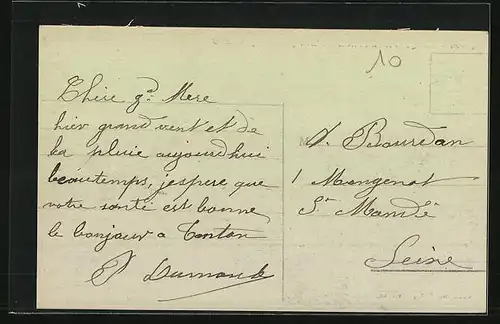 10
Chère gd Mere
hier grand vent et de
la pluie aujourdhui
beautemps, jespere que
votre santé est bonne
le bonjour a Tonton
P Durmond
Bourdan
1 Mongenot
St Mandé
Seine